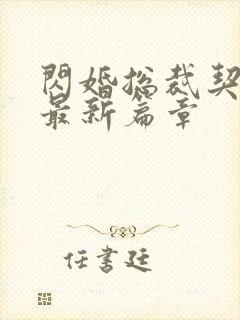 閃婚總裁契
最新篇章
任書廷